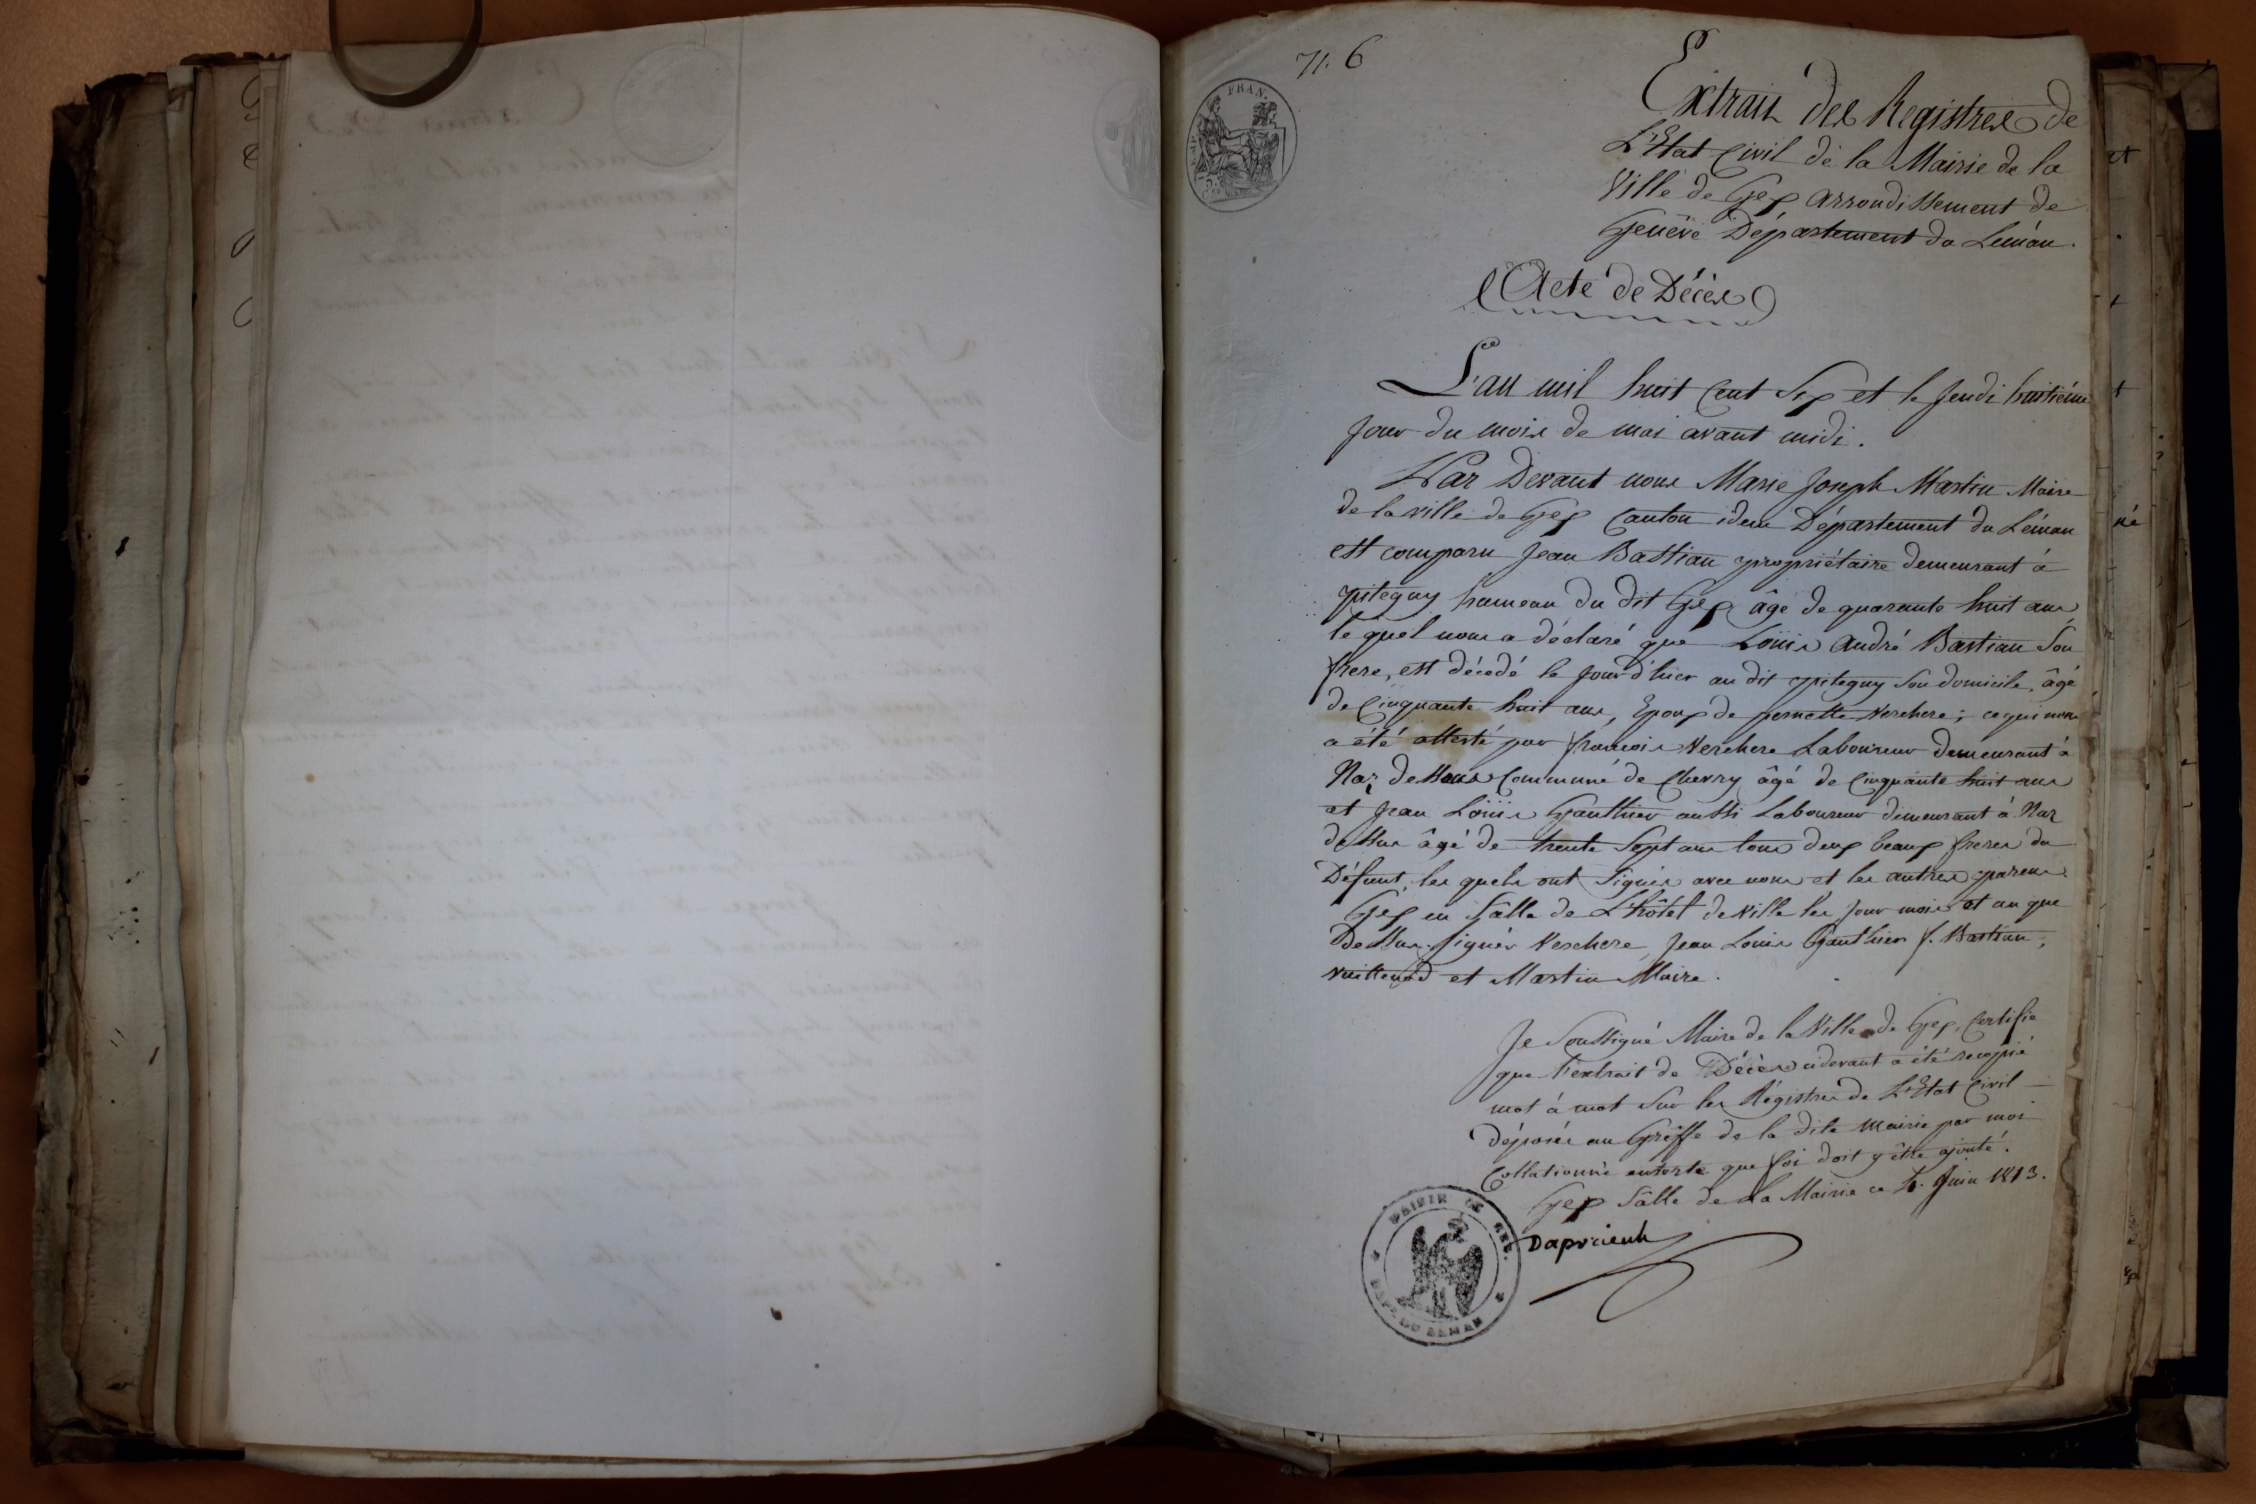 n. 6
FRAN.
Extrait des Registres de
L'Etat Civil de la Mairie de la
Ville de Gex arrondissement de
Geneve Département du Leman.
Acte de Décès
L'an mil huit Cent Six et le Jeudi huitiéme
Jour du mois de mai avant midi.
Par Devant nous Marie Joseph Martin Maire
de la ville de Gex Canton idem Département du Léman
est comparu Jean Bastian propriétaire demeurant à
pitegny hameau du dit Gex âgé de quarante huit ans
le quel nous a déclaré que Loüis André Bastian Son
frere, est décédé le Jour d'hier au dit pitegny son domicile, âgé
de Cinquante huit ans, Epoux de pernette Verchere; ce qui nous
a été attesté par francois Verchere Laboureur demeurant à
Naz dessous Commune de Chevry âgé de Cinquante huit ans
et Jean Loüis Gauthier aussi Laboureur demeurant à Naz
dessus âgé de trente Sept ans tous deux beaux freres du
Défunt, les quels ont Signés avec nous et les autres parens.
Gex en Salle de L'hôtel de Ville les Jour mois et an que
dessus. Signés Verchere, Jean Louis Gauthier J. Bastian,
et Martin Maire.
Je Soussigné Maire de la Ville de Gex, Certifie
que l'extrait de Décès cidevant a été recopié
mot à mot Sur les Régistres de L'Etat Civil
déposés au Greffe de la dite Mairie par moi
Collationné ensorte que foi doit y être ajouté.
Gex Salle de La Mairie ce 4. Juin 1813.
MAIRIE DE GEX.
DEPT. DU LEMAN